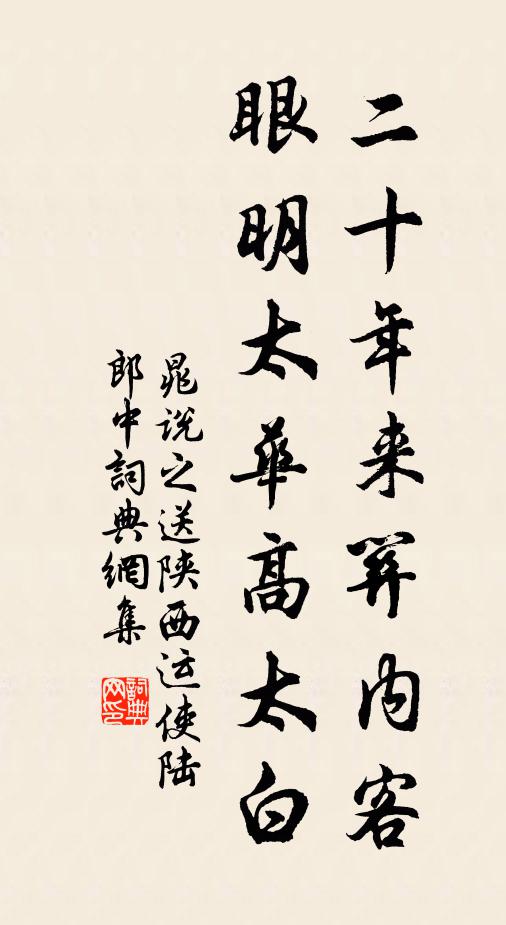 二十年来關内客
眼明太華高太白
晁説之送陝西运使陆
郎中詞典網集
詞典
网印